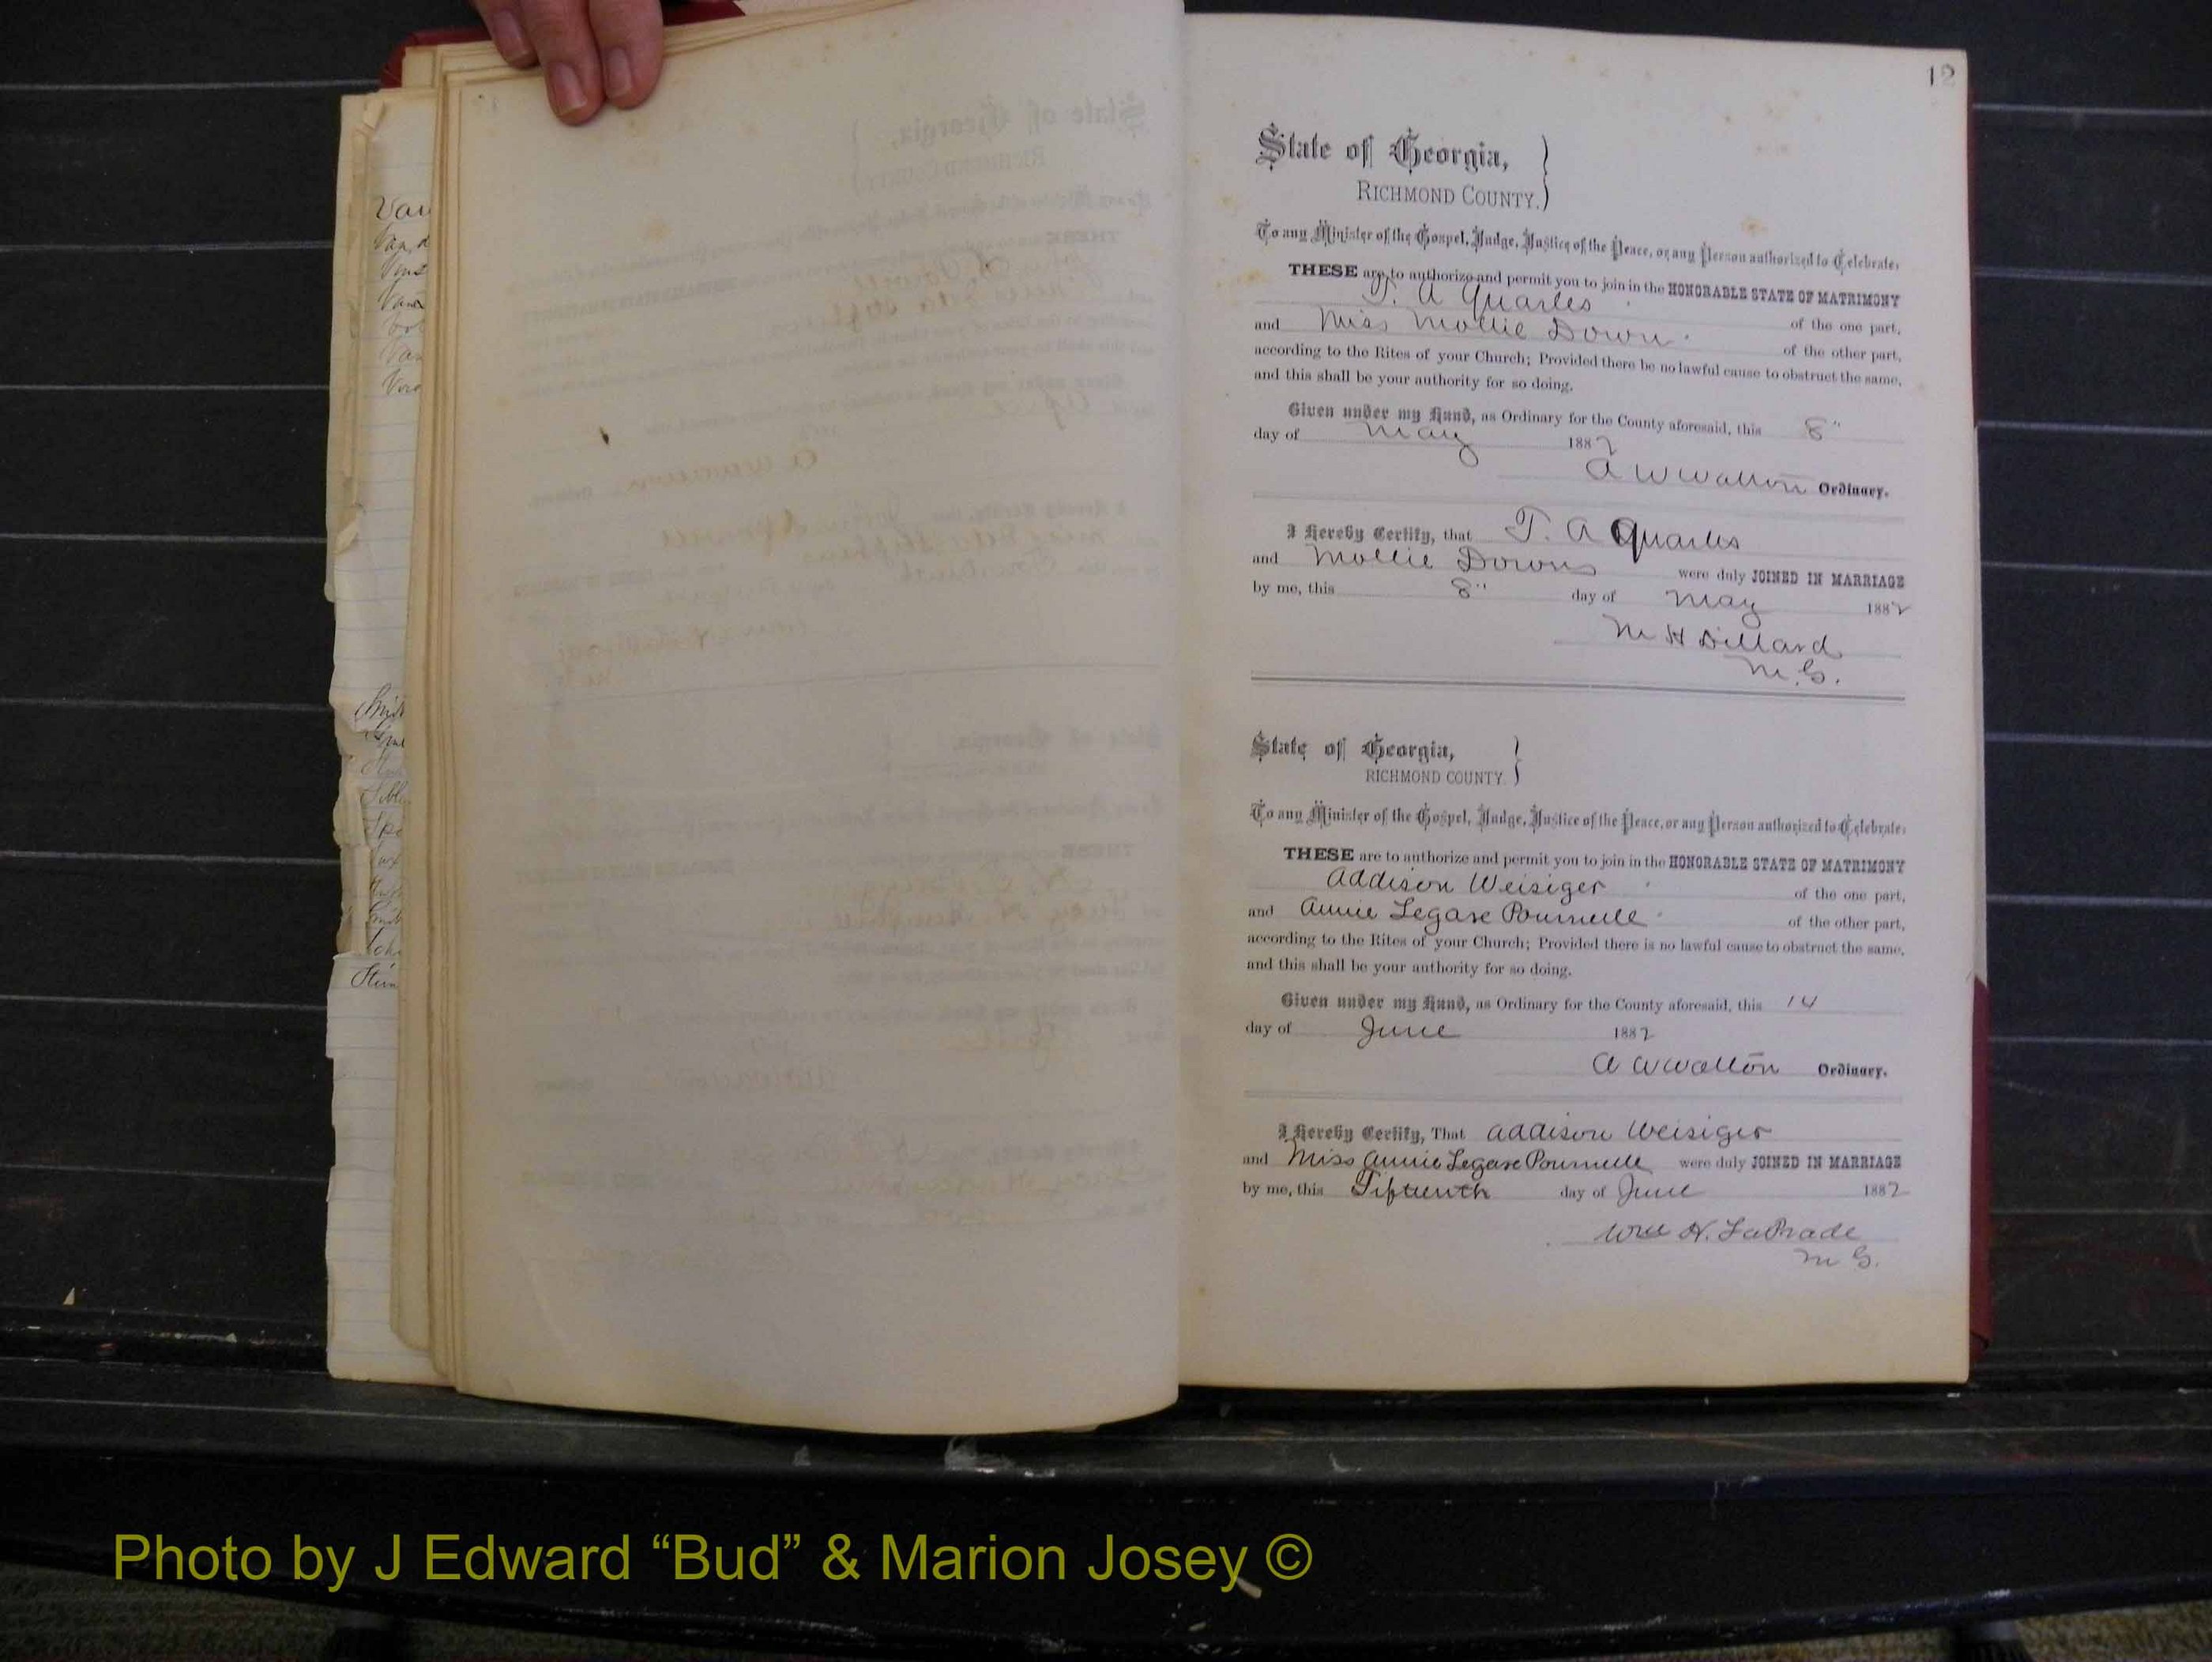 12
State of Georgia,
RICHMOND COUNTY.
To any Minister of the Gospel, Judge, Justice of the Peace, or any Person authorized to Celebrate:
THESE are to authorize and permit you to join in the HONORABLE STATE OF MATRIMONY
T. A Quarles of the one part,
and Miss Mollie Down of the other part,
according to the Rites of your Church; Provided there be no lawful cause to obstruct the same,
and this shall be your authority for so doing.
Given under my Hand, as Ordinary for the County aforesaid, this 8"
day of May 1882
A W Walton Ordinary.
I Hereby Certify, that T. A Quarles
and Mollie Downs were duly JOINED IN MARRIAGE
by me, this 8" day of May 1882
M H Dillard
M.G.
State of Georgia,
RICHMOND COUNTY.
To any Minister of the Gospel, Judge, Justice of the Peace, or any Person authorized to Celebrate:
THESE are to authorize and permit you to join in the HONORABLE STATE OF MATRIMONY
Addison Weisiger of the one part,
and Annie Legare Pournelle of the other part,
according to the Rites of your Church; Provided there is no lawful cause to obstruct the same,
and this shall be your authority for so doing.
Given under my Hand, as Ordinary for the County aforesaid, this 14
day of June 1882
A W Walton Ordinary.
I Hereby Certify, That Addison Weisiger
and Miss Annie Legare Pournelle were duly JOINED IN MARRIAGE
by me, this Fifteenth day of June 1882
Wm H. LaPrade
M G.
Photo by J Edward “Bud” & Marion Josey ©